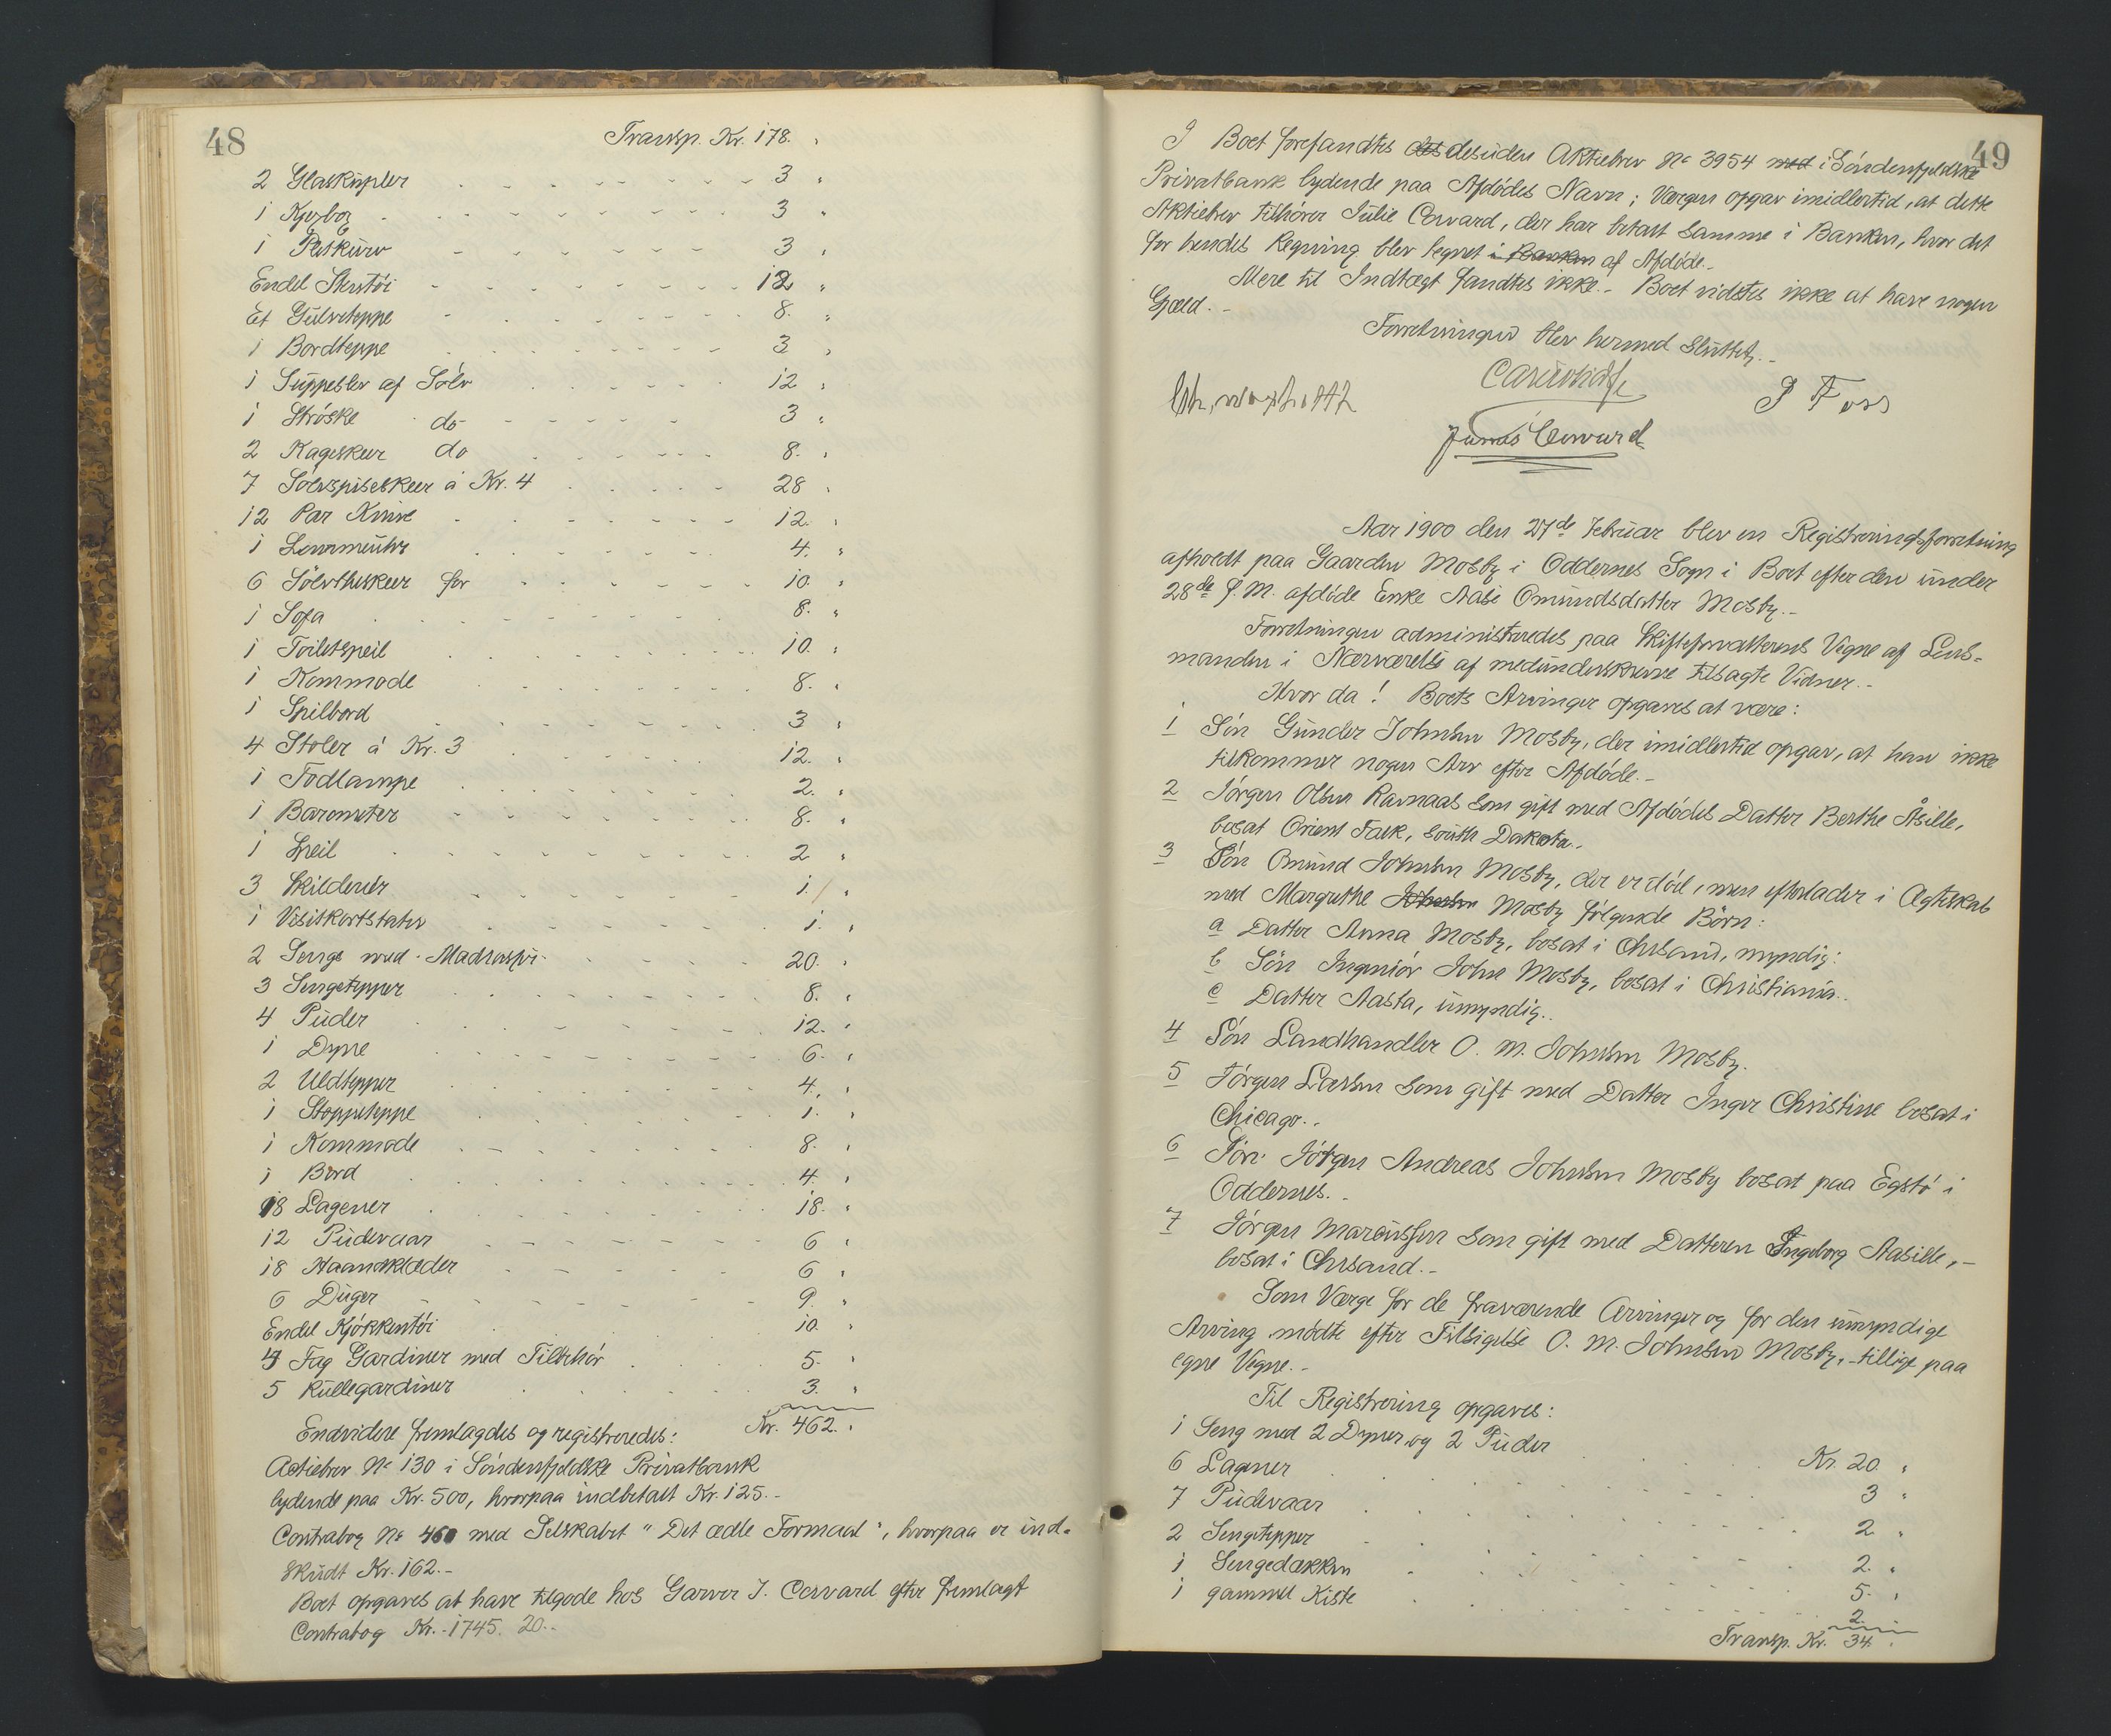 48
Transp. Kr. 178. "
2 Glaskupler 3 "
1 Kjøbog 3 "
1 Petskurv 3 "
Endel Stentøi 12 "
Et Gulvteppe 8. "
1 Bordteppe 3 "
1 Suppeslev af Sølv 12 "
1 Strøske do- 3 "
2 Kageskeer do 8. "
7 Sølvspiseskeer à Kr. 4 28 "
12 Par Knive 12. "
1 Lommeuhr 4. "
6 Sølvtheskeer for 10. "
1 Sofa 8. "
1 Toiletspeil 10. "
1 Kommode 8. "
1 Spilbord 3 "
4 Stoler à Kr. 3 12. "
1 Fodlampe 2. "
1 Barometer 8. "
1 Speil 2 "
3 Skilderier 1. "
1 Visitkortstativ 1. "
2 Senge med Madrasser 20. "
3 Sengetepper 8. "
4 Puder 12. "
1 Dyne 6. "
2 Uldtepper 4. "
1 Stoppeteppe 1. "
1 Kommode 8. "
1 Bord 4. "
18 Lagener 18. "
12 Pudevaar 6 "
18 Haandklæder 6 "
6 Duger 9. "
Endel Kjøkkentøi 10. "
4 Fag Gardiner med Tilbehør 5. "
5 Rullegardiner 3. "
Kr. 462. "
Endvidere fremlagdes og registreredes:
Actiebrev No 130 i Søndenfjeldske Privatbank
lydende paa Kr. 500, hvorpaa indbetalt Kr. 125.-
Contrabog No 460 med Selskabet "Det ædle Formaal", hvorpaa er ind-
skudt Kr. 162.-
Boet opgaves at have tilgode hos Garver J. Corvard efter fremlagt
Contrabog Kr. 1745. 20..
49
I Boet forefandtes des desuden Aktiebrev No 3954 med i Søndenfjeldske
Privatbank lydende paa Afdødes Navn; Værgen opgav imidlertid, at dette
Aktiebrev tilhører Julie Corvard, der har betalt samme i Banken, hvor det
for hendes Regning blev tegnet i Banken af Afdøde.-
Mere til Indtægt fandtes ikke.- Boet vidstes ikke at have nogen
Gjæld.-
Forretningen blev hermed sluttet.-
J Foss
Aar 1900 den 27de Februar blev en Registreringsforretning
afholdt paa Gaarden Mosby i Oddernes Sogn i Boet efter den under
28de f. M. afdøde Enke Aase Omundsdatter Mosby.-
Forretningen administreredes paa Skifteforvalterens Vegne af Lens-
manden i Nærværelse af medunderskrevne tilsagte Vidner.-
Hvor da! Boets Arvinger opgaves at være:
1 Søn Gunder Johnsen Mosby, der imidlertid opgav, at han ikke
tilkommer nogen Arv efter Afdøde.-
2 Jørgen Olsen Ravnaas som gift med Afdødes Datter Berthe Åsille,
bosat Orient Falk, South Dakota.
3 Søn Omund Johnsen Mosby, der er død, men efterlader i Ægteskab
med Margrethe Johnsen Mosby følgende Børn:
a Datter Anna Mosby, bosat i Chrsand, myndig:
b Søn Ingeniør John Mosby, bosat i Christiania..
c Datter Aasta, umyndig..
4 Søn Landhandler O. M. Johnsen Mosby.
5 Jørgen Larsen som gift med Datter Inger Christine bosat i
Chicago..
6 Søn Jørgen Andreas Johnsen Mosby bosat paa Egstø i
Oddernes..
7 Jørgen Marcussen som gift med Datteren Ingeborg Aasille,-
bosat i Chrsand.-
Som Værge for de fraværende Arvinger og for den umyndige
Arving mødte efter Tilsigelse O. M. Johnsen Mosby, - tillige paa
egne Vegne.-
Til Registrering opgaves:
1 Seng med 2 Dyner og 2 Puder Kr. 20 "
6 Lagener 3 "
7 Pudevaar 2 "
2 Sengetepper 2. "
1 Sengedækken 5. "
1 gammel Kiste 2. "
Transp. Kr. 34. "